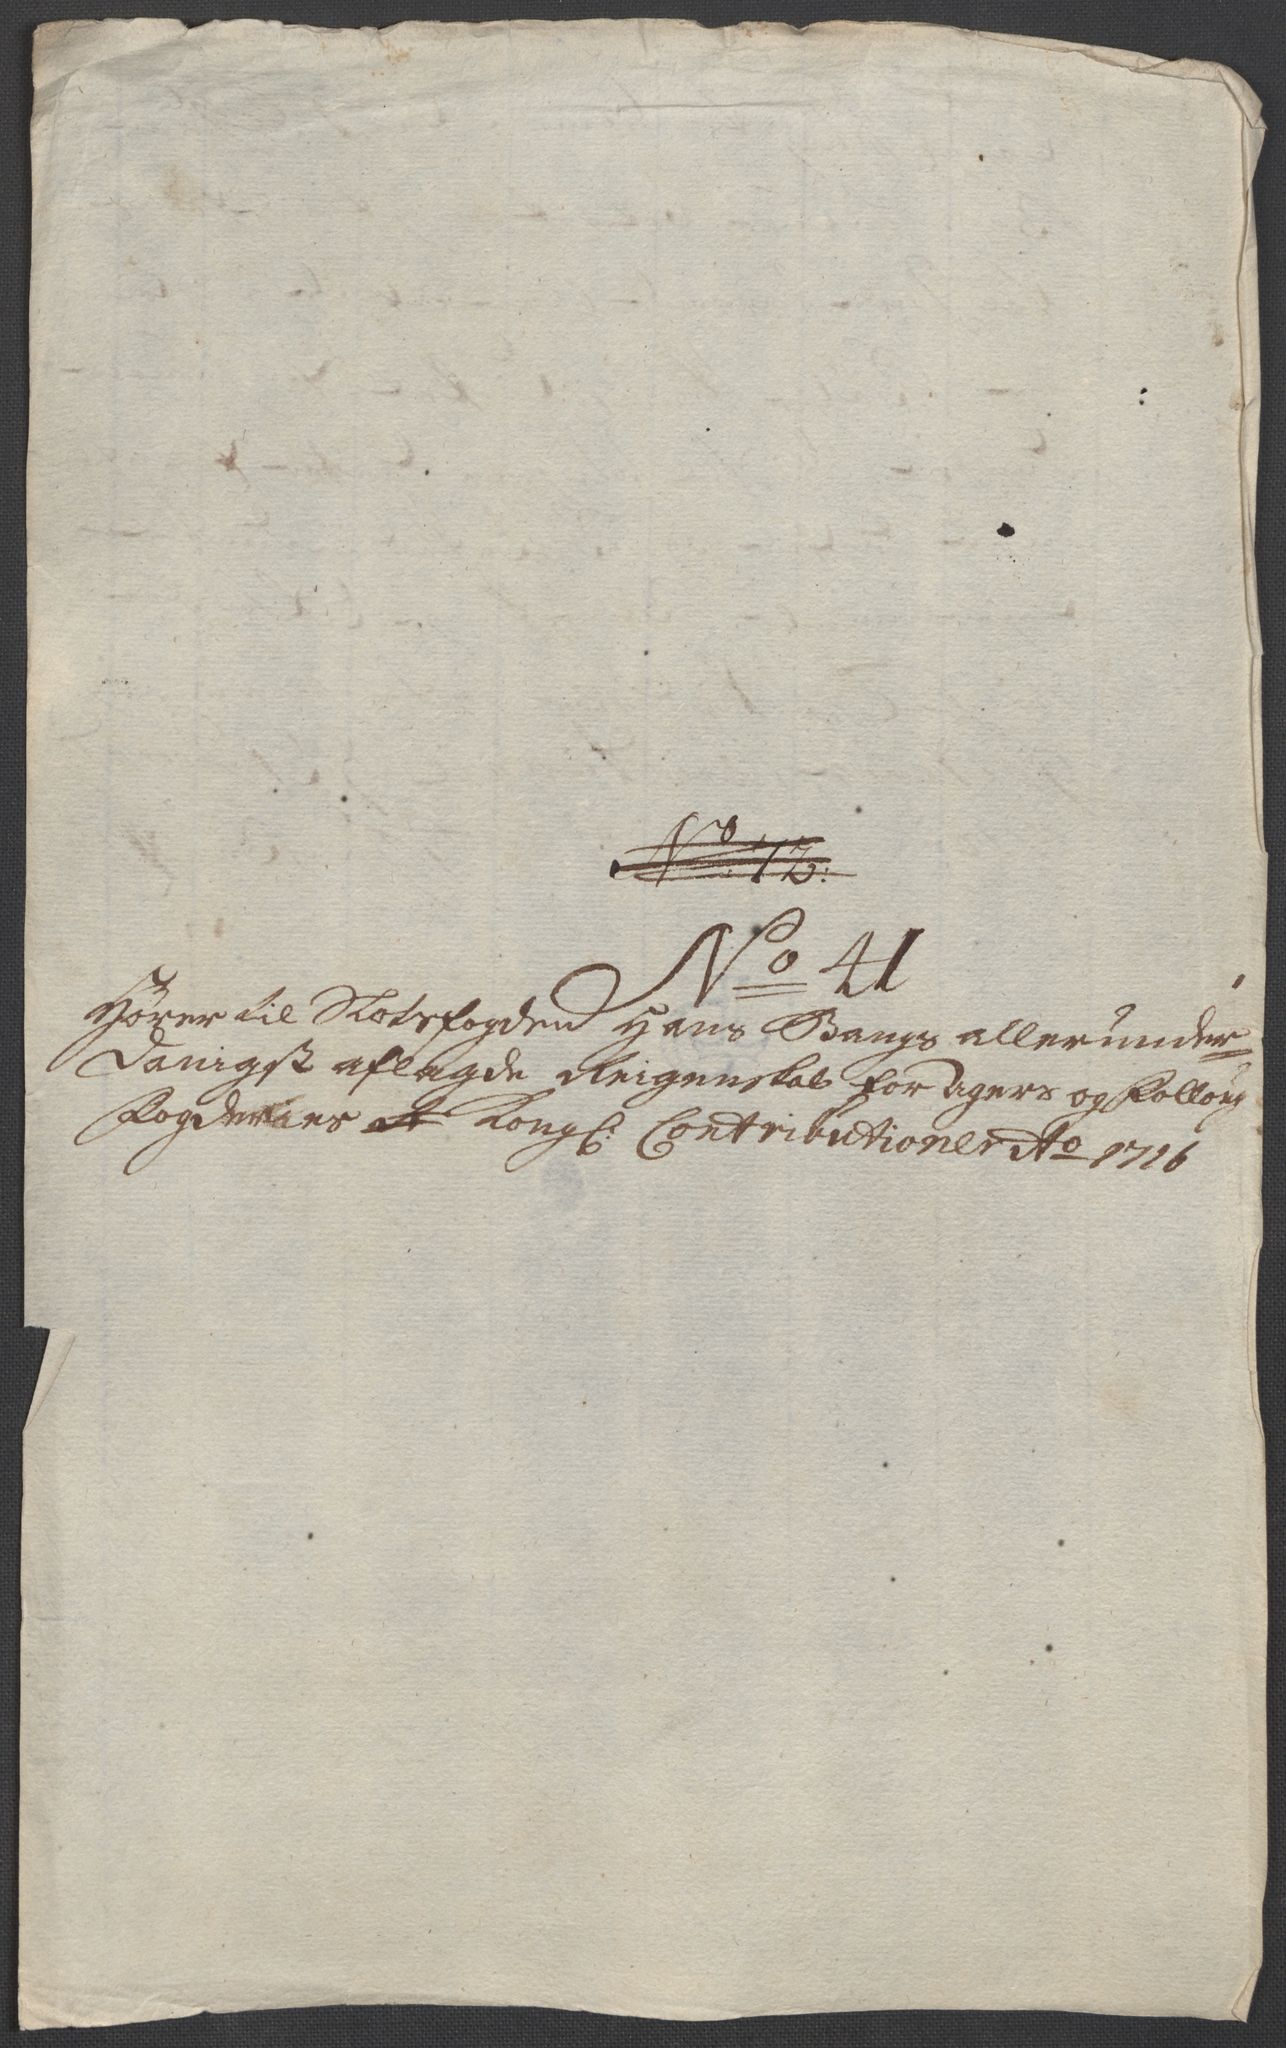 No: 12:
No 41
Hörer til Slotsfogden Hans Bangs allerunder=
danigst aflagde Reigenskab for Agers og Folloug
Fogderiers Kongl: Contributioner Ao 1716